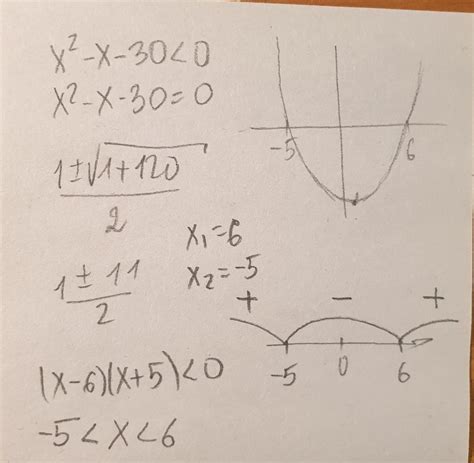 x²-x-30<0
x²-x-30=0
-5 6
1±√1+120
2
x₁=6
x₂=-5
1±11
2
+ - +
-5 0 6
(x-6)(x+5)<0
-5<x<6